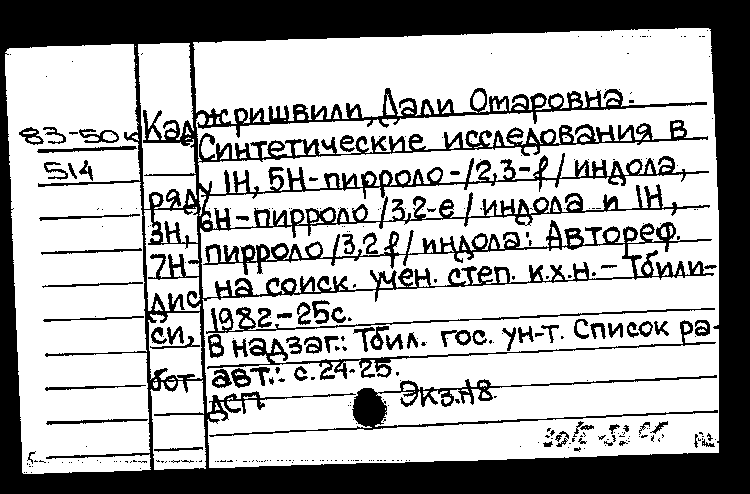 Каджришвили, Дали Отаровна.
83-50к Синтетические исследования в
514
ряду 1Н, 5Н-пирроло-/2,3-f/индола,
3Н, 6Н-пирроло/3,2-е/индола и 1Н,
7Н-пирроло/3,2f/индола: Автореф.
дис на соиск. учен. степ. к.х.н.-Тбили-
си, 1982.-25с.
В надзаг.: Тбил. гос. ун-т. Список ра-
бот авт.: с.24-25.
ДСП Экз.N8